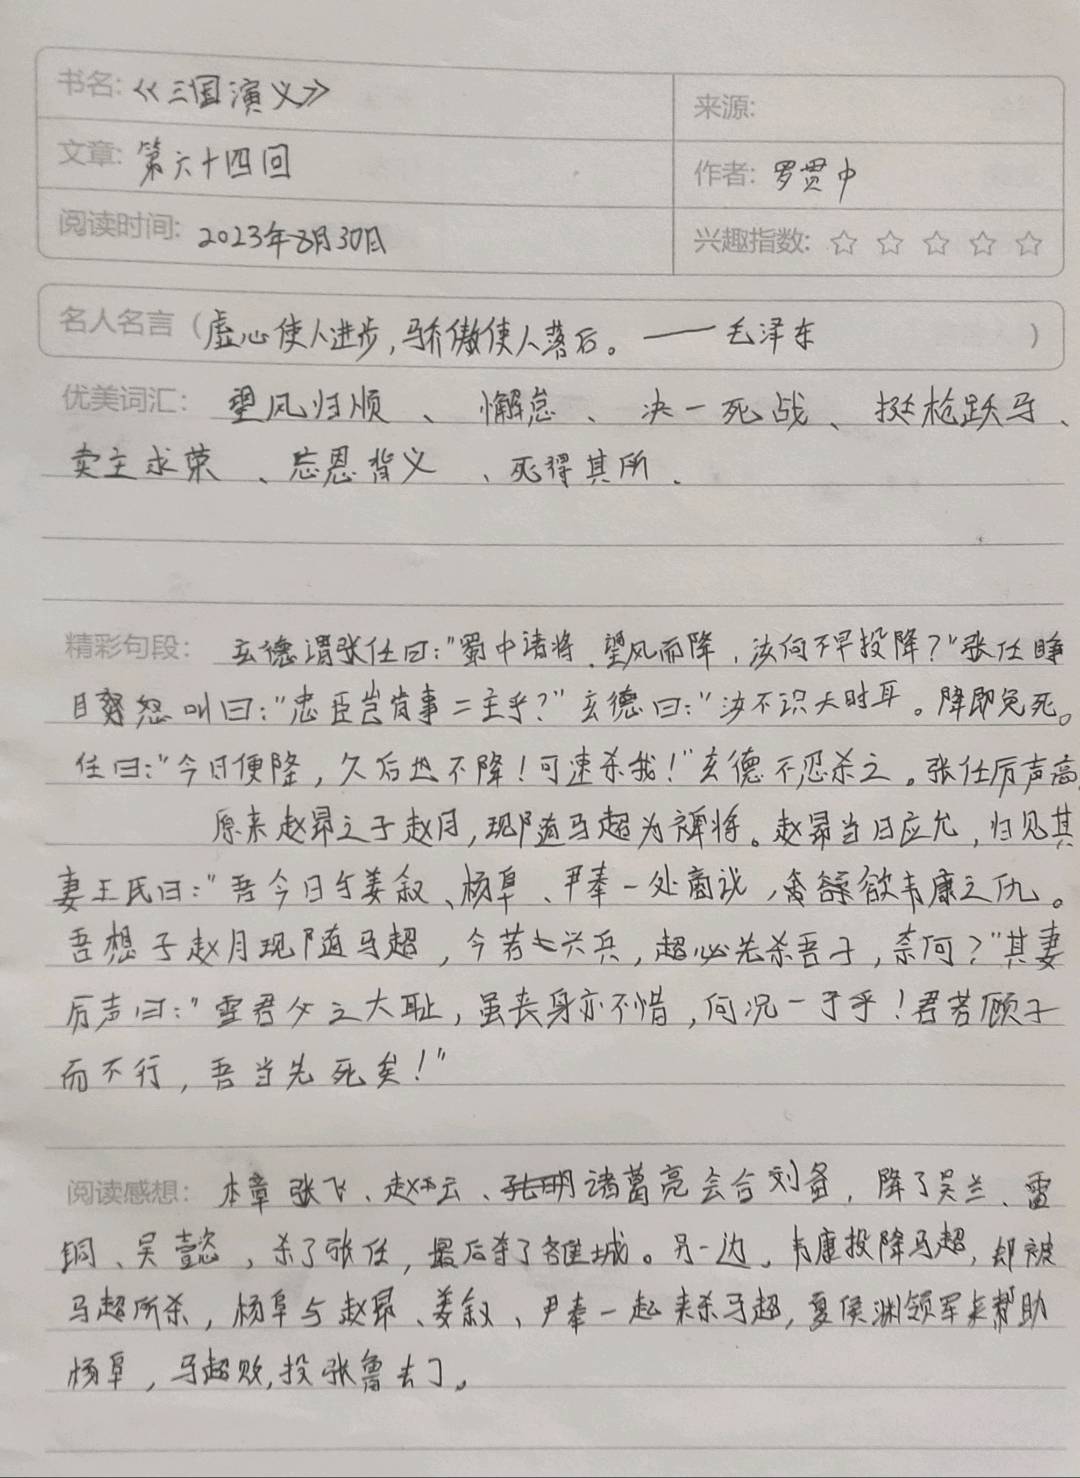 书名:《三国演义》
来源:
文章:第六十四回
作者:罗贯中
阅读时间:2023年8月30日
兴趣指数:☆☆☆☆☆
名人名言(虚心使人进步,骄傲使人落后。——毛泽东)
优美词汇:望风归顺、懈怠、决一死战、挺枪跃马、
卖主求荣、忘恩背义、死得其所.
精彩句段:玄德谓张任曰:"蜀中诸将.望风而降,汝何不早投降?"张任睁
目怒叫曰:"忠臣岂肯事二主乎?"玄德曰:"汝不识天时耳。降即免死。
任曰:"今日便降,久后也不降!可速杀我!"玄德不忍杀之。张任厉声高
原来赵昂之子赵月,现随马超为裨将。赵昂当日应允,归见其
妻王氏曰:"吾今日与姜叙、杨阜、尹奉一处商议,欲韦康之仇。
吾想子赵月现随马超,今若兴兵,超必先杀吾子,奈何?"其妻
厉声曰:"雪君父之大耻,虽丧身亦不惜,何况一子乎!君若顾子
而不行,吾当先死矣!"
阅读感想:本章张飞、赵云、孔明诸葛亮会合刘备,降了吴兰、雷
铜、吴懿,杀了张任,最后夺了雒城。另一边,韦康投降马超,却被
马超所杀,杨阜与赵昂、姜叙、尹奉一起来杀马超,夏侯渊领军来帮助
杨阜,马超败,投张鲁去了。